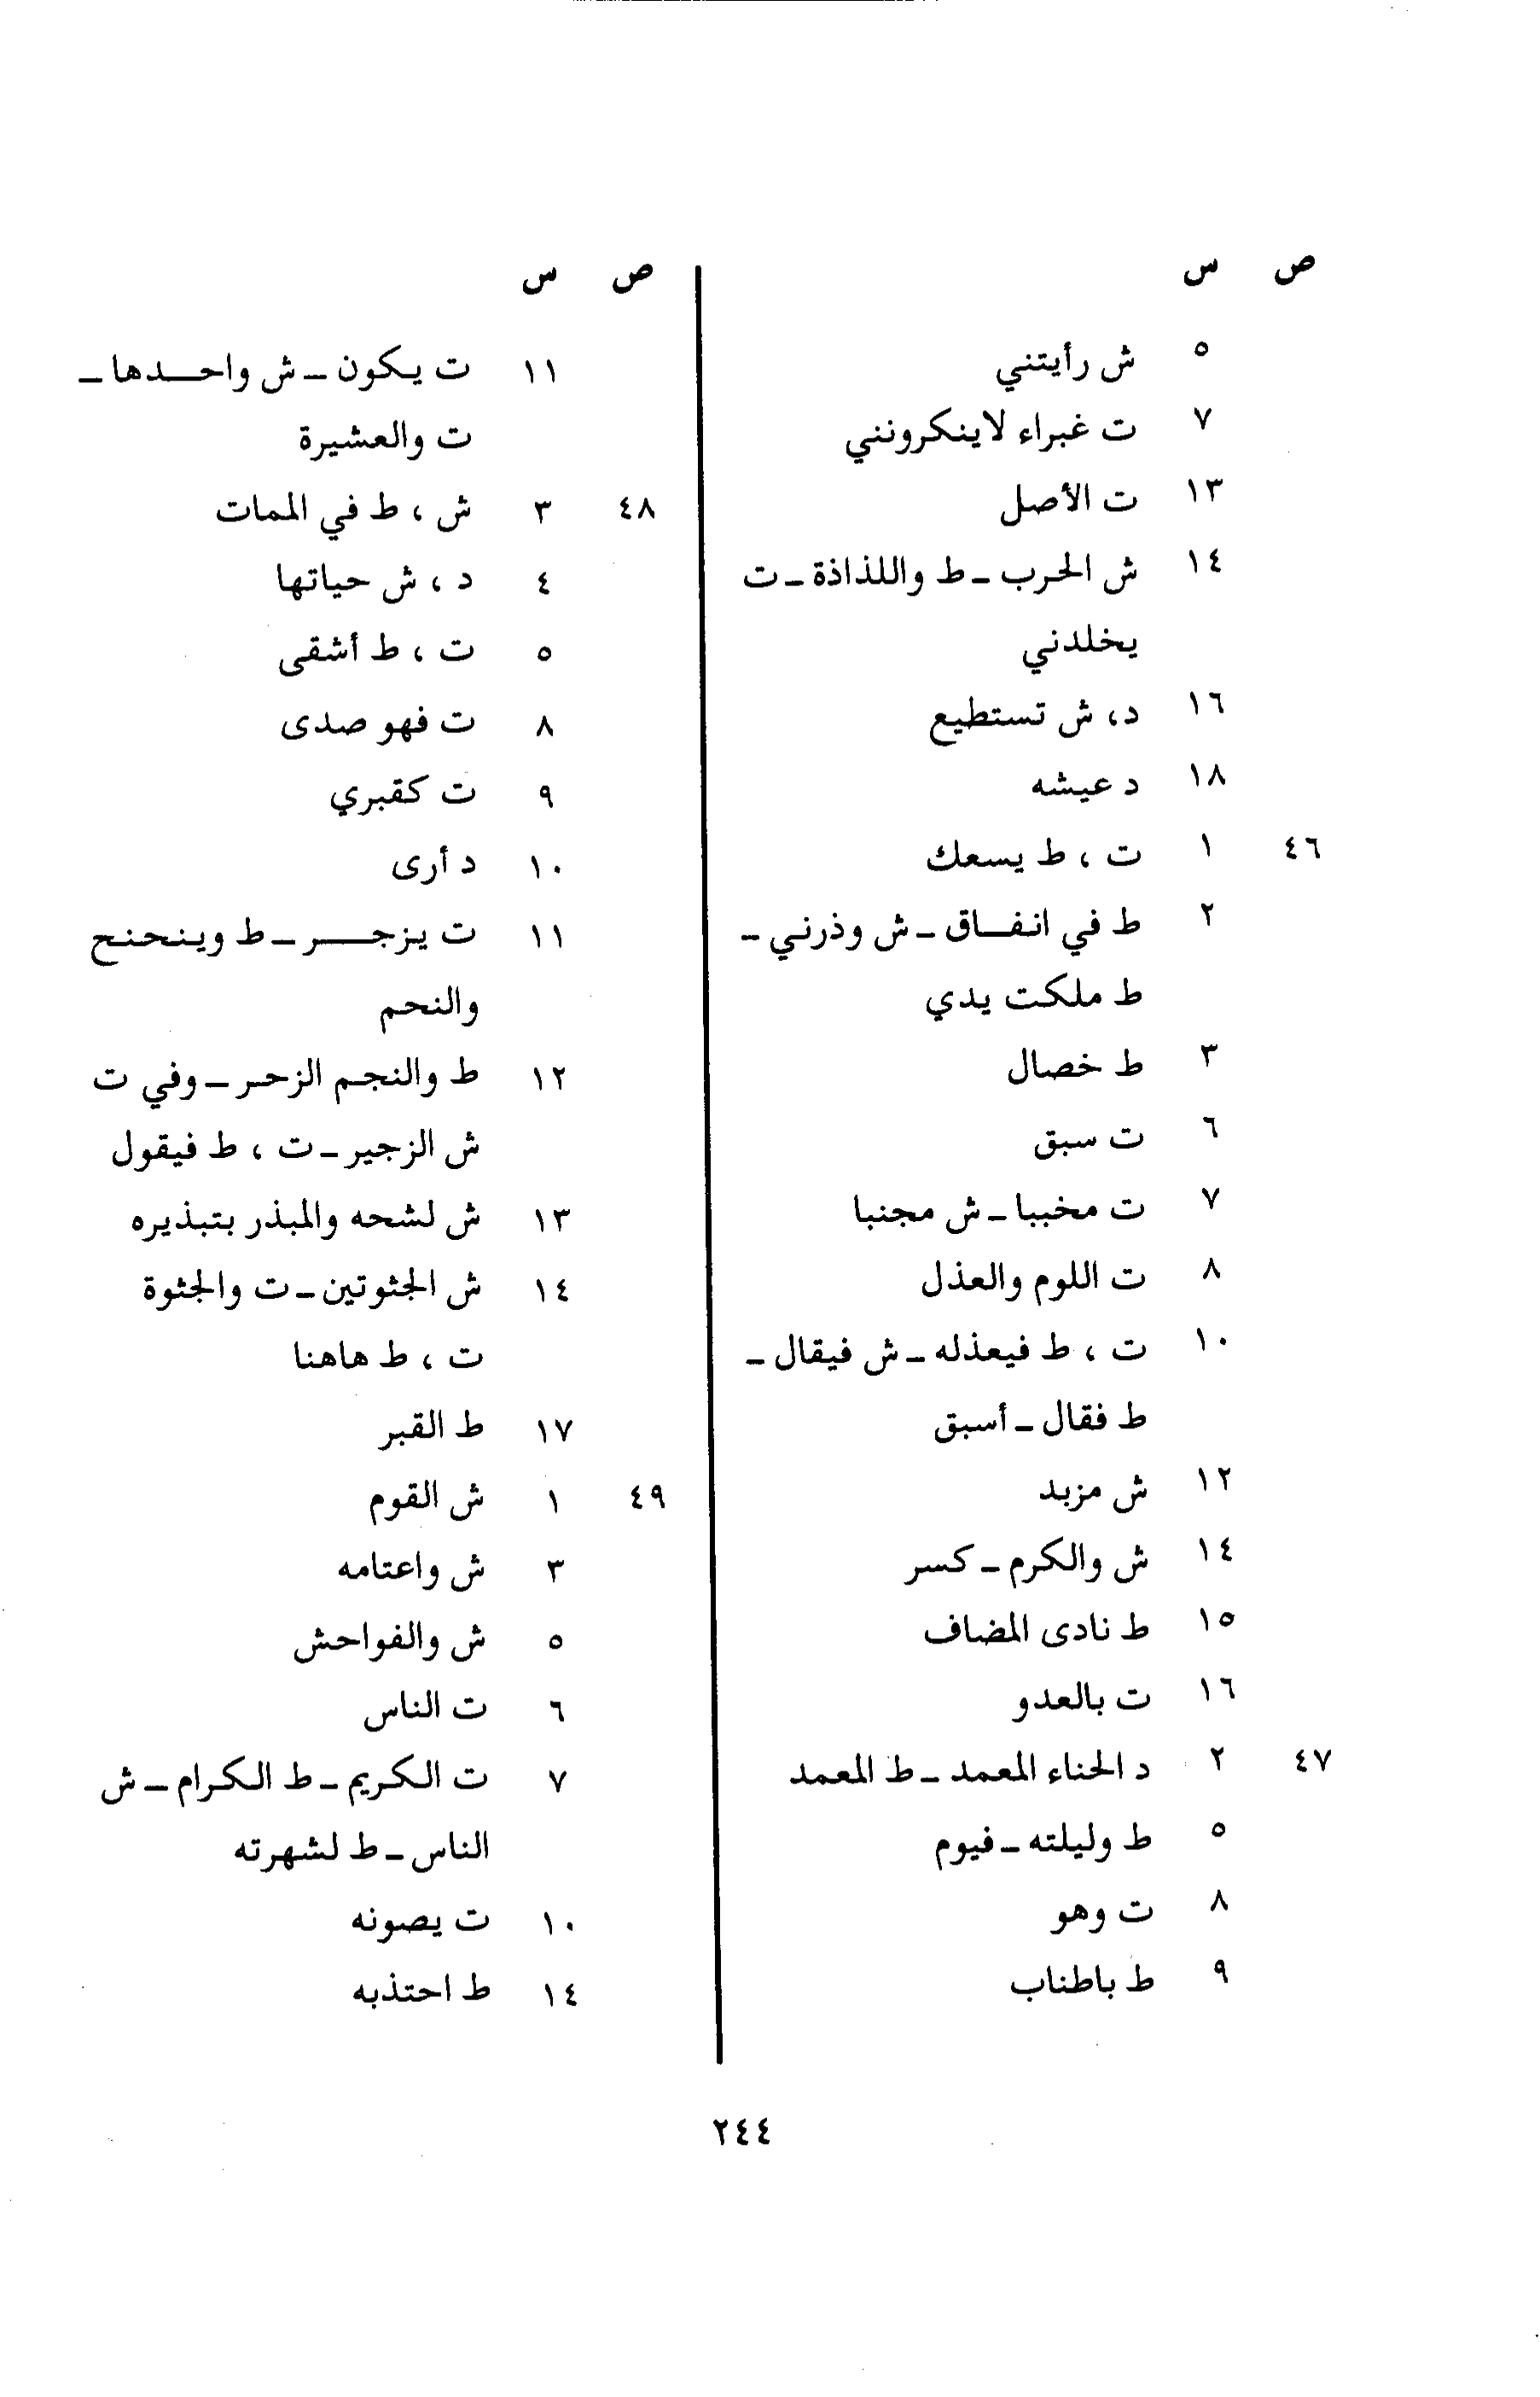 ص س
٥ ش رأيتني
٧ ت غبراء لاينكرونني
١٣ ت الأصل
١٤ ش الحرب ـ ط واللذاذة ـ ت
يخلدني
١٦ د، ش تستطيع
١٨ د عيشه
٤٦ ١ ت ، ط يسعك
٢ ط في انفـاق ـ ش وذرني ـ
ط ملكت يدي
٣ ط خصال
٦ ت سبق
٧ ت مخببا ـ ش مجنبا
٨ ت اللوم والعذل
١٠ ت ، ط فيعذله ـ ش فيقال ـ
ط فقال ـ أسبق
١٢ ش مزبد
١٤ ش والكرم ـ كسر
١٥ ط نادى المضاف
١٦ ت بالعدو
٤٧ ٢ د الحناء المعمد ـ ط المعمد
٥ ط وليلته ـ فيوم
٨ ت وهو
٩ ط باطناب
ص س
١١ ت يكون ـ ش واحـدها ـ
ت والعشيرة
٤٨ ٣ ش ، ط في الممات
٤ د ، ش حياتها
٥ ت ، ط أشقى
٨ ت فهو صدى
٩ ت كقبري
١٠ د أرى
١١ ت يزجـــر ـ ط وينحنح
والنحم
١٢ ط والنجم الزحر ـ وفي ت
ش الزجير ـ ت ، ط فيقول
١٣ ش لشحه والمبذر بتبذيره
١٤ ش الجثوتين ـ ت والجثوة
ت ، ط هاهنا
١٧ ط القبر
٤٩ ١ ش القوم
٣ ش واعتامه
٥ ش والفواحش
٦ ت الناس
٧ ت الكريم ـ ط الكرام ـ ش
الناس ـ ط لشهرته
١٠ ت يصونه
١٤ ط احتذبه
٢٤٤